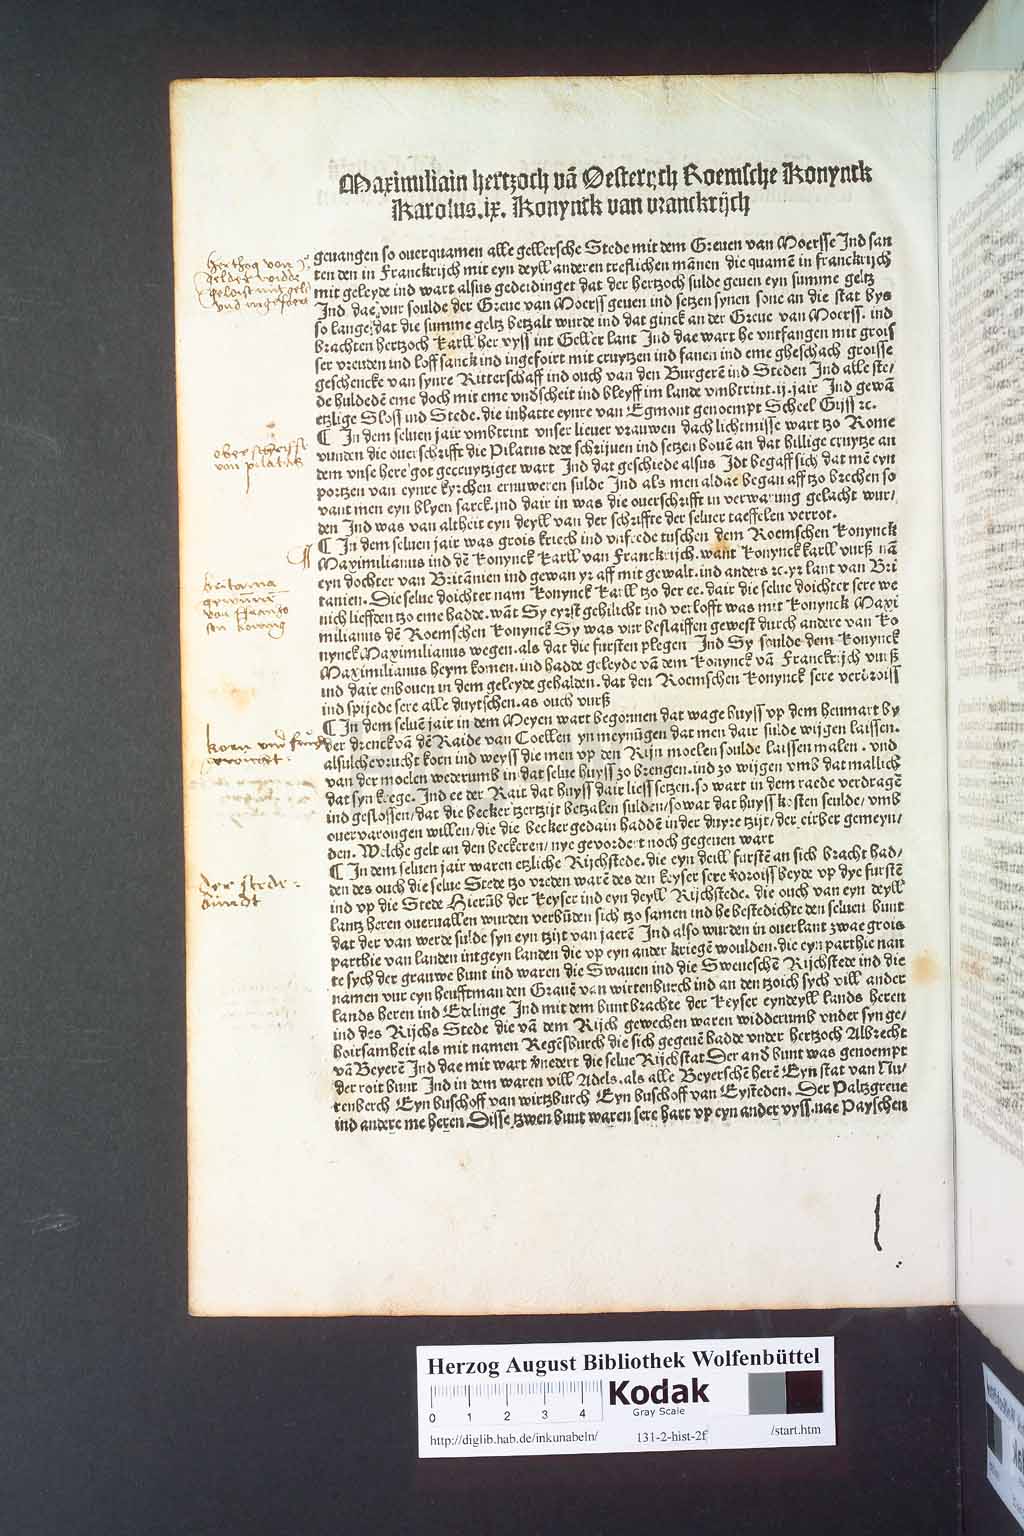 Maximiliain hertzoch vā Oesterrych Roemsche Konynck
Karolus.ix. Konynck van vranckrijch
geuangen so ouerquamen alle gellersche Stede mit dem Greuen van Moersse Ind san
ten den in Franckrijch mit eyn deyll anderen treflichen mānen die quamē in franckrijch
mit geleyde ind wart alsus gedeidinget dat der hertzoch sulde geuen eyn summe geltz
Ind dae vur soulde der Greue van Moerss geuen ind setzen synen sone an die stat bys
so lange/dat die summe geltz betzalt wurde ind dat ginck an der Greue van Moerss. ind
brachten hertzoch Karll her vyss int Geller lant Ind dae wart he vntfangen mit grois
ser vreuden ind loff sanck ind ingefoirt mit cruytzen ind fanen ind eme gheschach groisse
geschencke van synre Ritterschaff ind ouch van den Burgerē ind Steden Ind alle ste/
de huldedē eme doch mit eme vndscheit ind bleyff im lande vmbtrint.ij.jair Ind gewā
etzlige Sloss ind Stede.die inhatte eynre van Egmont genoempt Scheel Gijss ꝛc.
¶ In dem seluen jair vmbtrint vnser lieuer vrauwen dach lichtmisse wart tzo Rome
vunden die ouerschrifft die Pilatus dede schrijuen ind setzen bouē an dat hillige cruytze an
dem vnse here got gecruytziget wart Ind dat geschiede alsus Idt begaff sich dat mē eyn
portzen van eynre kyrchen ernuweren sulde Ind als men aldae began aff tzo brechen so
vant men eyn blyen sarck.ind dair in was die ouerschrifft in verwarung gelacht wur/
den Ind was van altheit eyn deyll van der schriffte der seluer taeffelen verrot.
¶ In dem seluen jair was grois kriech ind vnfrede tuschen dem Roemschen Konynck
Maximilianus ind dē Konynck Karll van Franckrijch.want Konynck karll vurß nā
eyn dochter van Britānien ind gewan yr aff mit gewalt.ind anders ꝛc.yr lant van Bri
tanien.Die selue doichter nam Konynck Karll tzo der ee.dair die selue doichter sere we
nich lieffden tzo eme hadde.wāt Sy eyrst gehilicht ind verlofft was mit Konynck Maxi
milianus dē Roemschen Konynck Sy was vur beslaiffen gewest durch andere van Ko
nynck Maximilianus wegen.als dat die fursten plegen Ind Sy soulde dem Konynck
Maximilianus heym komen.ind hadde geleyde vā dem Konynck vā Franckrijch vurß
ind dair enbouen in dem geleyde gehalden.dat den Roemschen Konynck sere verdroiss
ind spijede sere alle duytschen.as ouch vurß
¶ In dem seluē jair in dem Meyen wart begonnen dat wage huyss vp dem heumart by
der drenck vā dē Raide van Coellen yn meynūgen dat men dair sulde wijgen laissen.
alsulche vrucht korn ind weyss die men vp den Rijn moelen soulde laissen malen. vnd
van der moelen wederumb in dat selue huyss zo brengen.ind zo wijgen vmb dat mallich
dat syn krege. Ind ee der Rait dat huyss dair liess setzen.so wart in dem raede verdragē
ind geslossen/dat die becker tzertzijt betzalen sulden/so wat dat huyss kosten seulde/vmb
ouervarongen willen/die die becker gedain haddē in der duyre tzijt/der eirber gemeyn/
den. Welche gelt an den beckeren/nye gevordert noch gegeuen wart
¶ In dem seluen jair waren etzliche Rijchstede.die eyn deill furstē an sich bracht had/
den des ouch die selue Stede tzo vreden warē des den keyser sere v̄droiss beyde vp dye furstē
ind vp die Stede Hierūb der keyser ind eyn deyll Rijchstede. die ouch van eyn deyll
lantz heren oueruallen wurden verbūden sich tzo samen ind he bestedichte den seluen bunt
dat der van werde sulde syn eyn tzijt van jaerē Ind also wurden in ouerlant zwae grois
parthie van landen intgeyn landen die vp eyn ander kriegē woulden.die eyn parthie nan
te sych der grauwe bunt ind waren die Swauen ind die Sweueschē Rijchstede ind die
namen vur eyn heufftman den Grauē van wirtenburch ind an den tzoich sych vill ander
lands heren ind Edelinge Ind mit dem bunt brachte der keyser eyndeyll lands heren
ind des Rijchs Stede die vā dem Rijch gewechen waren widderumb vnder syn ge/
hoirsamheit als mit namen Regēsburch die sich gegeuē hadde vnder hertzoch Albrecht
vā Beyerē Ind dae mit wart v̄nedert die selue Rijchstat Der and̄ bunt was genoempt
der roit bunt Ind in dem waren vill Adels.als alle Beyerschē herē Eyn stat van Nu/
renberch Eyn buschoff van wirtzburch Eyn buschoff van Eysteden. Der Paltzgreue
ind andere me heren Disse tzwen bunt waren sere hart vp eyn ander vyss.nae Payschen
hertzog von
geldern
von pilatus
britania
gewunnen
von
korn und
der stede
bundt
Herzog August Bibliothek Wolfenbüttel
0 1 2 3 4
Kodak
Gray Scale
http://diglib.hab.de/inkunabeln/ 131-2-hist-2f /start.htm